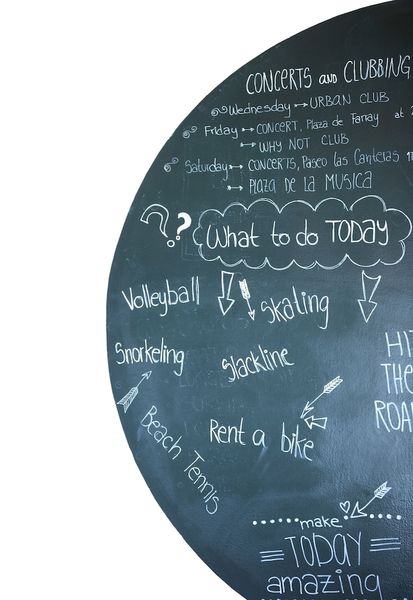 CONCERTS AND CLUBBING
Wednesday → URBAN CLUB
Friday → CONCERT, Plaza de Farray at
→ WHY NOT CLUB
Saturday → CONCERTS, Paseo las Canteras
→ PLAZA DE LA MUSICA
?? What to do TODAY
Volleyball
Skating
Snorkeling
Slackline
HI
THE
ROA
Rent a bike
Beach Tennis
make
TODAY
amazing